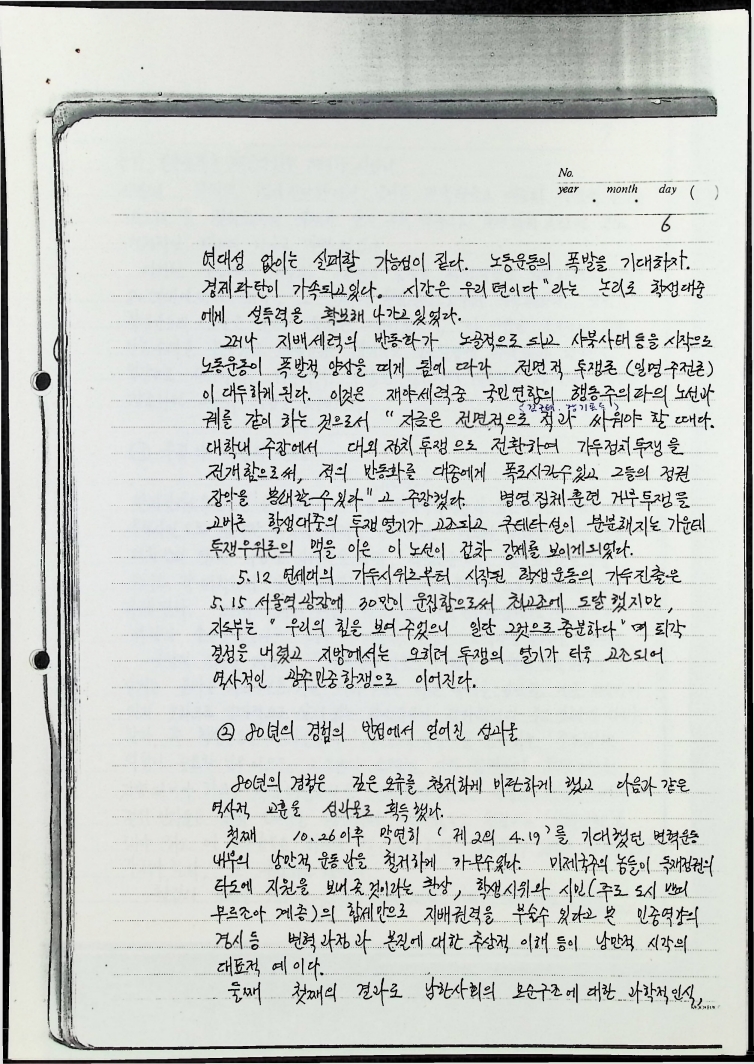 No.
year . month . day ( )
6
연대성 없이는 실패할 가능성이 짙다. 노동운동의 폭발을 기대하자.
경제파탄이 가속되고있다. 시간은 우리편이다"라는 논리로 학생대중
에게 설득력을 확보해 나가고 있었다.
그러나 지배세력의 반동화가 노골적으로 되고 사북사태 등을 시작으로
노동운동이 폭발적 양상을 띠게 됨에 따라 전면적 투쟁론 (일명 주전론)
이 대두하게 된다. 이것은 재야세력중 국민연합의 행동주의파의 노선과
궤를 같이 하는 것으로서 "지금은 전면적으로 적과 싸워야 할 때다.
대학내 주장에서 대외 정치 투쟁으로 전환하여 가두정치투쟁을
전개함으로써, 적의 반동화를 대중에게 폭로시킬수있고 그들의 정권
장악을 봉쇄할 수 있다"고 주장했다. 병영집체훈련 거부투쟁을
고비로 학생대중의 투쟁열기가 고조되고 쿠데타설이 분분해지는 가운데
투쟁우위론의 맥을 이은 이 노선이 점차 강세를 보이게되었다.
5.12 연세대의 가두시위로부터 시작된 학생운동의 가두진출은
5.15 서울역광장에 30만이 운집함으로써 최고조에 도달했지만,
지도부는 "우리의 힘을 보여 주었으니 일단 그것으로 충분하다"며 퇴각
결정을 내렸고 지방에서는 오히려 투쟁의 열기가 더욱 고조되어
역사적인 광주민중항쟁으로 이어진다.
② 80년의 경험의 반성에서 얻어진 성과물
80년의 경험은 깊은 오류를 철저하게 비판하게 했고 다음과 같은
역사적 교훈을 성과물로 획득했다.
첫째 10.26이후 막연히 '제2의 4.19'를 기대했던 변혁운동
내부의 낭만적 운동관을 철저하게 까부수었다. 미제국주의 놈들이 독재정권의
타도에 지원을 보내 줄 것이라는 환상, 학생시위와 시민(주로 도시 쁘띠
부르조아 계층)의 합세만으로 지배권력을 부술수 있다고 본 민중역량의
경시 등 변혁과정과 본질에 대한 추상적 이해 등이 낭만적 시각의
대표적 예이다.
둘째 첫째의 결과로 남한사회의 모순구조에 대한 과학적인식,